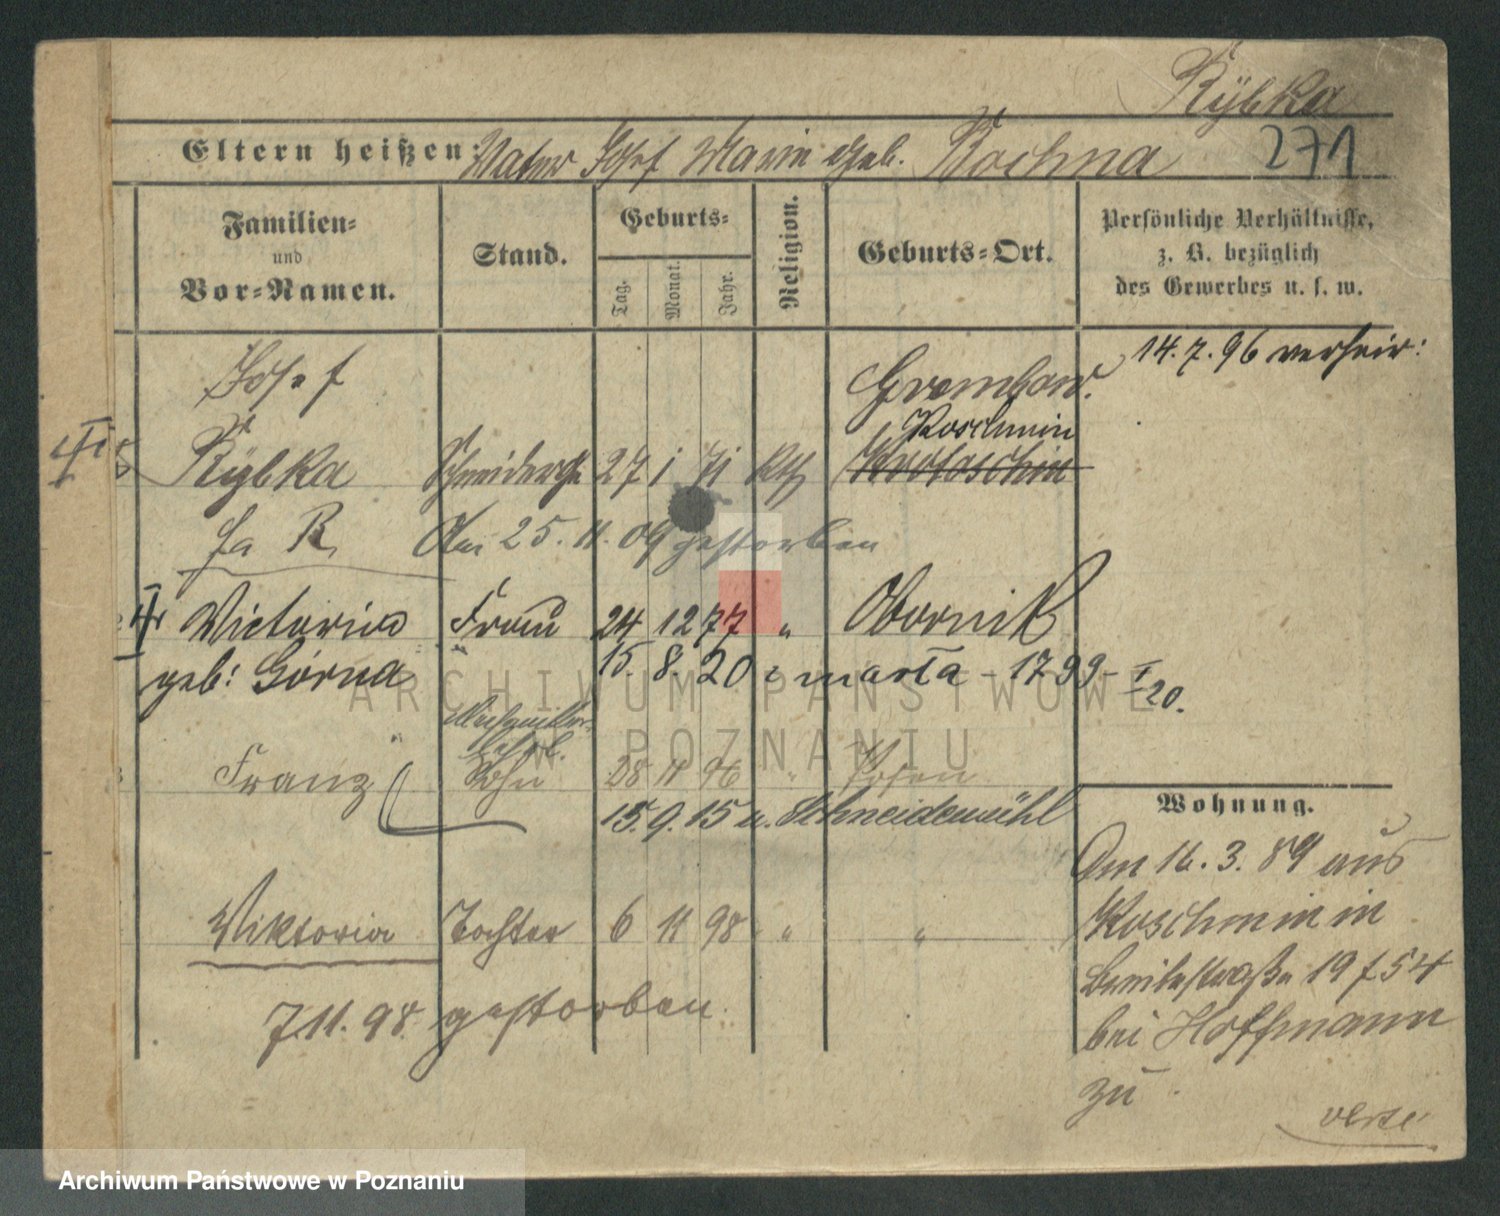 Rÿbka
271
Eltern heißen: Vater Josef Marie geb. Rochna
Familien-
und
Vor-Namen.
Stand.
Geburts-
Tag.
Monat.
Jahr.
Religion.
Geburts-Ort.
Persönliche Verhältnisse,
z. B. bezüglich
des Gewerbes u. s. w.
14.7.96 verheir:
Josef
Grembow.
Koschmin
Rÿbka Schneiderges 27 1 71 kth Krotoschin
fa R. Am 25.11.09 gestorben
Victoria Frau 24 12 77 " Obornik
geb: Górna 15. 8. 20 marta - 1799 - I/20.
Franz Sohn 28 11 96 " Posen
15.9.15 n. Schneidemühl
Wohnung.
Am 16.3.89 aus
Koschmin in
19 f 54
bei Hoffmann
zu
Viktoria Tochter 6 11 98 " "
7.11.98 gestorben.
verte
ARCHIWUM PAŃSTWOWE
W POZNANIU
Archiwum Państwowe w Poznaniu